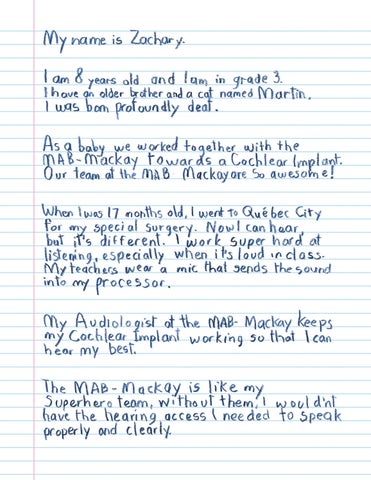 My name is Zachary.
I am 8 years old and I am in grade 3.
I have an older brother and a cat named Martin.
I was born profoundly deaf.
As a baby we worked together with the
MAB-Mackay towards a Cochlear Implant.
Our team at the MAB Mackay are so awesome!
When I was 17 months old, I went to Québec City
for my special surgery. Now I can hear,
but it's different. I work super hard at
listening, especially when it's loud in class.
My teachers wear a mic that sends the sound
into my processor.
My Audiologist at the MAB-Mackay keeps
my Cochlear Implant working so that I can
hear my best.
The MAB-Mackay is like my
Superhero team, without them, I would'nt
have the hearing access I needed to speak
properly and clearly.